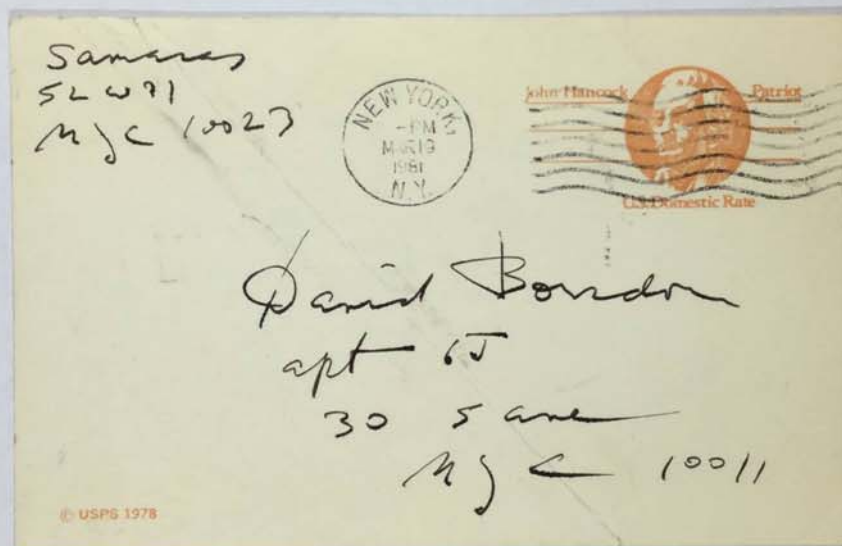 Samaras
52 W 71
NYC 10023
NEW YORK,
-PM
MAR 19
1981
N.Y.
John Hancock Patriot
U.S. Domestic Rate
David Bourdon
apt 6J
30 5 ave
NYC 10011
© USPS 1978